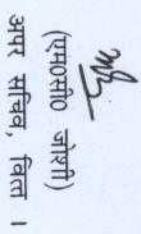 (एम०सी० जोशी)
अपर सचिव, वित्त ।